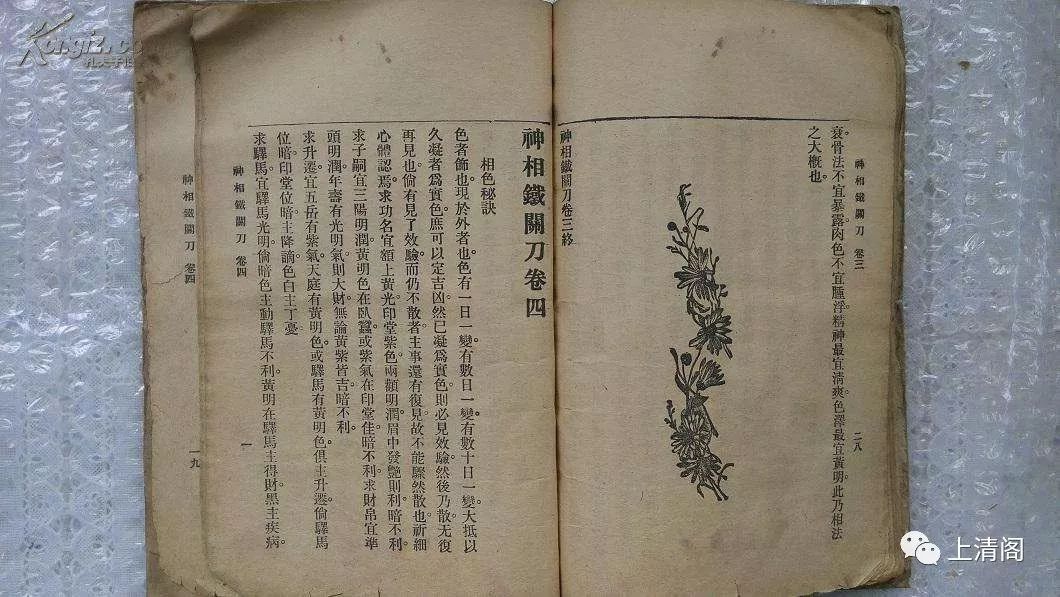 神相鐵關刀 卷三
二八
衰骨法不宜暴露肉色不宜腫浮精神最宜清爽色澤最宜黃明此乃相法
之大概也
神相鐵關刀卷三終
神相鐵關刀卷四
相色秘訣
色者飾也現於外者也色有一日一變有數日一變有數十日一變大抵以
久凝者爲實色庶可以定吉凶然已凝爲實色則必見效驗然後乃散无復
再見也倘有見了效驗而仍不散者主事還有復見故不能驟然散也祈細
心體認焉求功名宜額上黃光印堂紫色兩顴明潤眉中發艷則利暗不利
求子嗣宜三陽明潤黃明色在臥蠶或紫氣在印堂佳暗不利求財帛宜準
頭明潤年壽有光明氣則大財無論黃紫皆吉暗不利
求升遷宜五岳有紫氣天庭有黃明色或驛馬有黃明色俱主升遷倘驛馬
位暗印堂位暗主降謫色白主丁憂
求驛馬宜驛馬光明倘暗色主動驛馬不利黃明在驛馬主得財黑主疾病
神相鐵關刀 卷四
一
神相鐵關刀 卷四
一九
Kongfz.co
上清阁